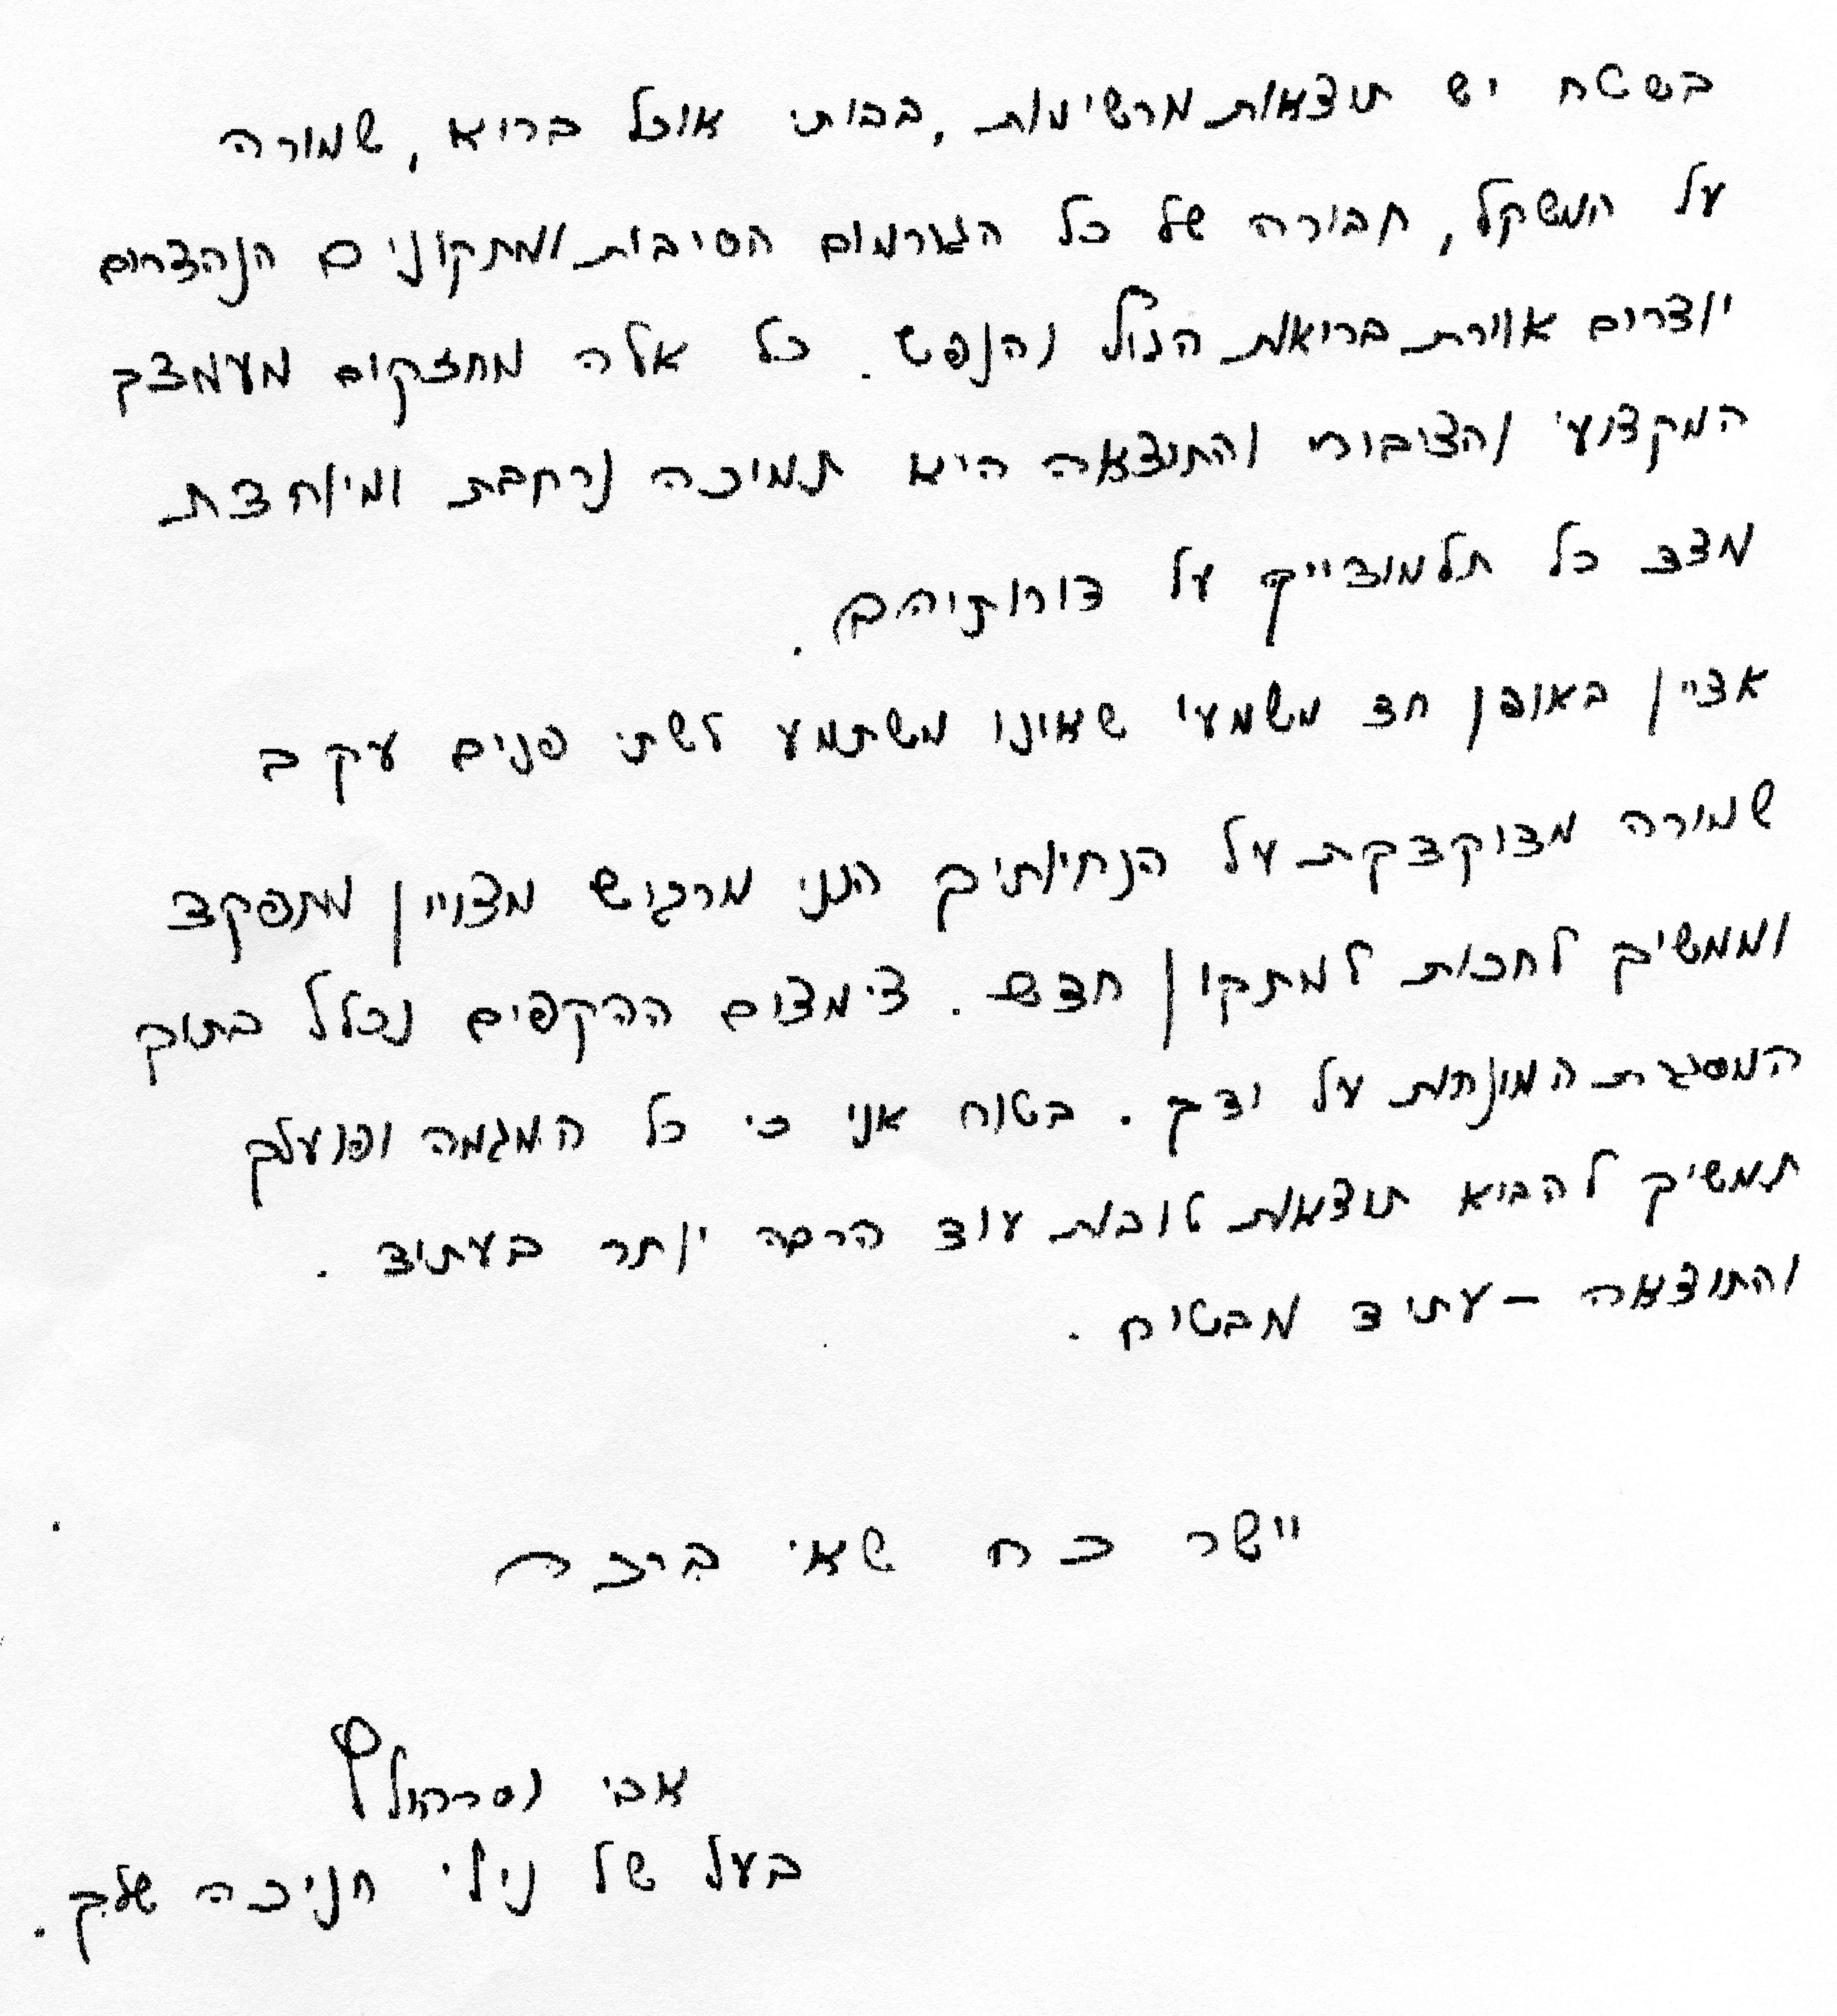 בשטח יש תוצאות מרשימות, בבותי אוכל בריא, שמורה
על המשקל, חבורה של כל הגורמים הסיבות ומתקונים הנהדרים
יוצרים אוירת בריאות הגוף והנפש. כל אלה מחזקים מעמדך
המקצועי והציבורי והתוצאה היא תמיכה נרחבת ומיוחדת
מצד כל תלמודייך על דורותיהם.
אציין באופן חד משמעי שאינו משתמע לשתי פנים עקב
שמירה מדוקדקת על הנחיותיך הנני מרגיש מצויין מתפקד
וממשיך לחכות למתקון חדש. צימצום ההקפים נכלל בתוך
המסגרת המונחת על ידך. בטוח אני כי כל המגמה ופועלך
תמשיך להביא תוצאות טובות עוד הרבה יותר בעתיד.
והתוצאה – עתיד מבטיח.
יישר כח שאי ברכה
אבי
בעל של נילי חניכה שלך.